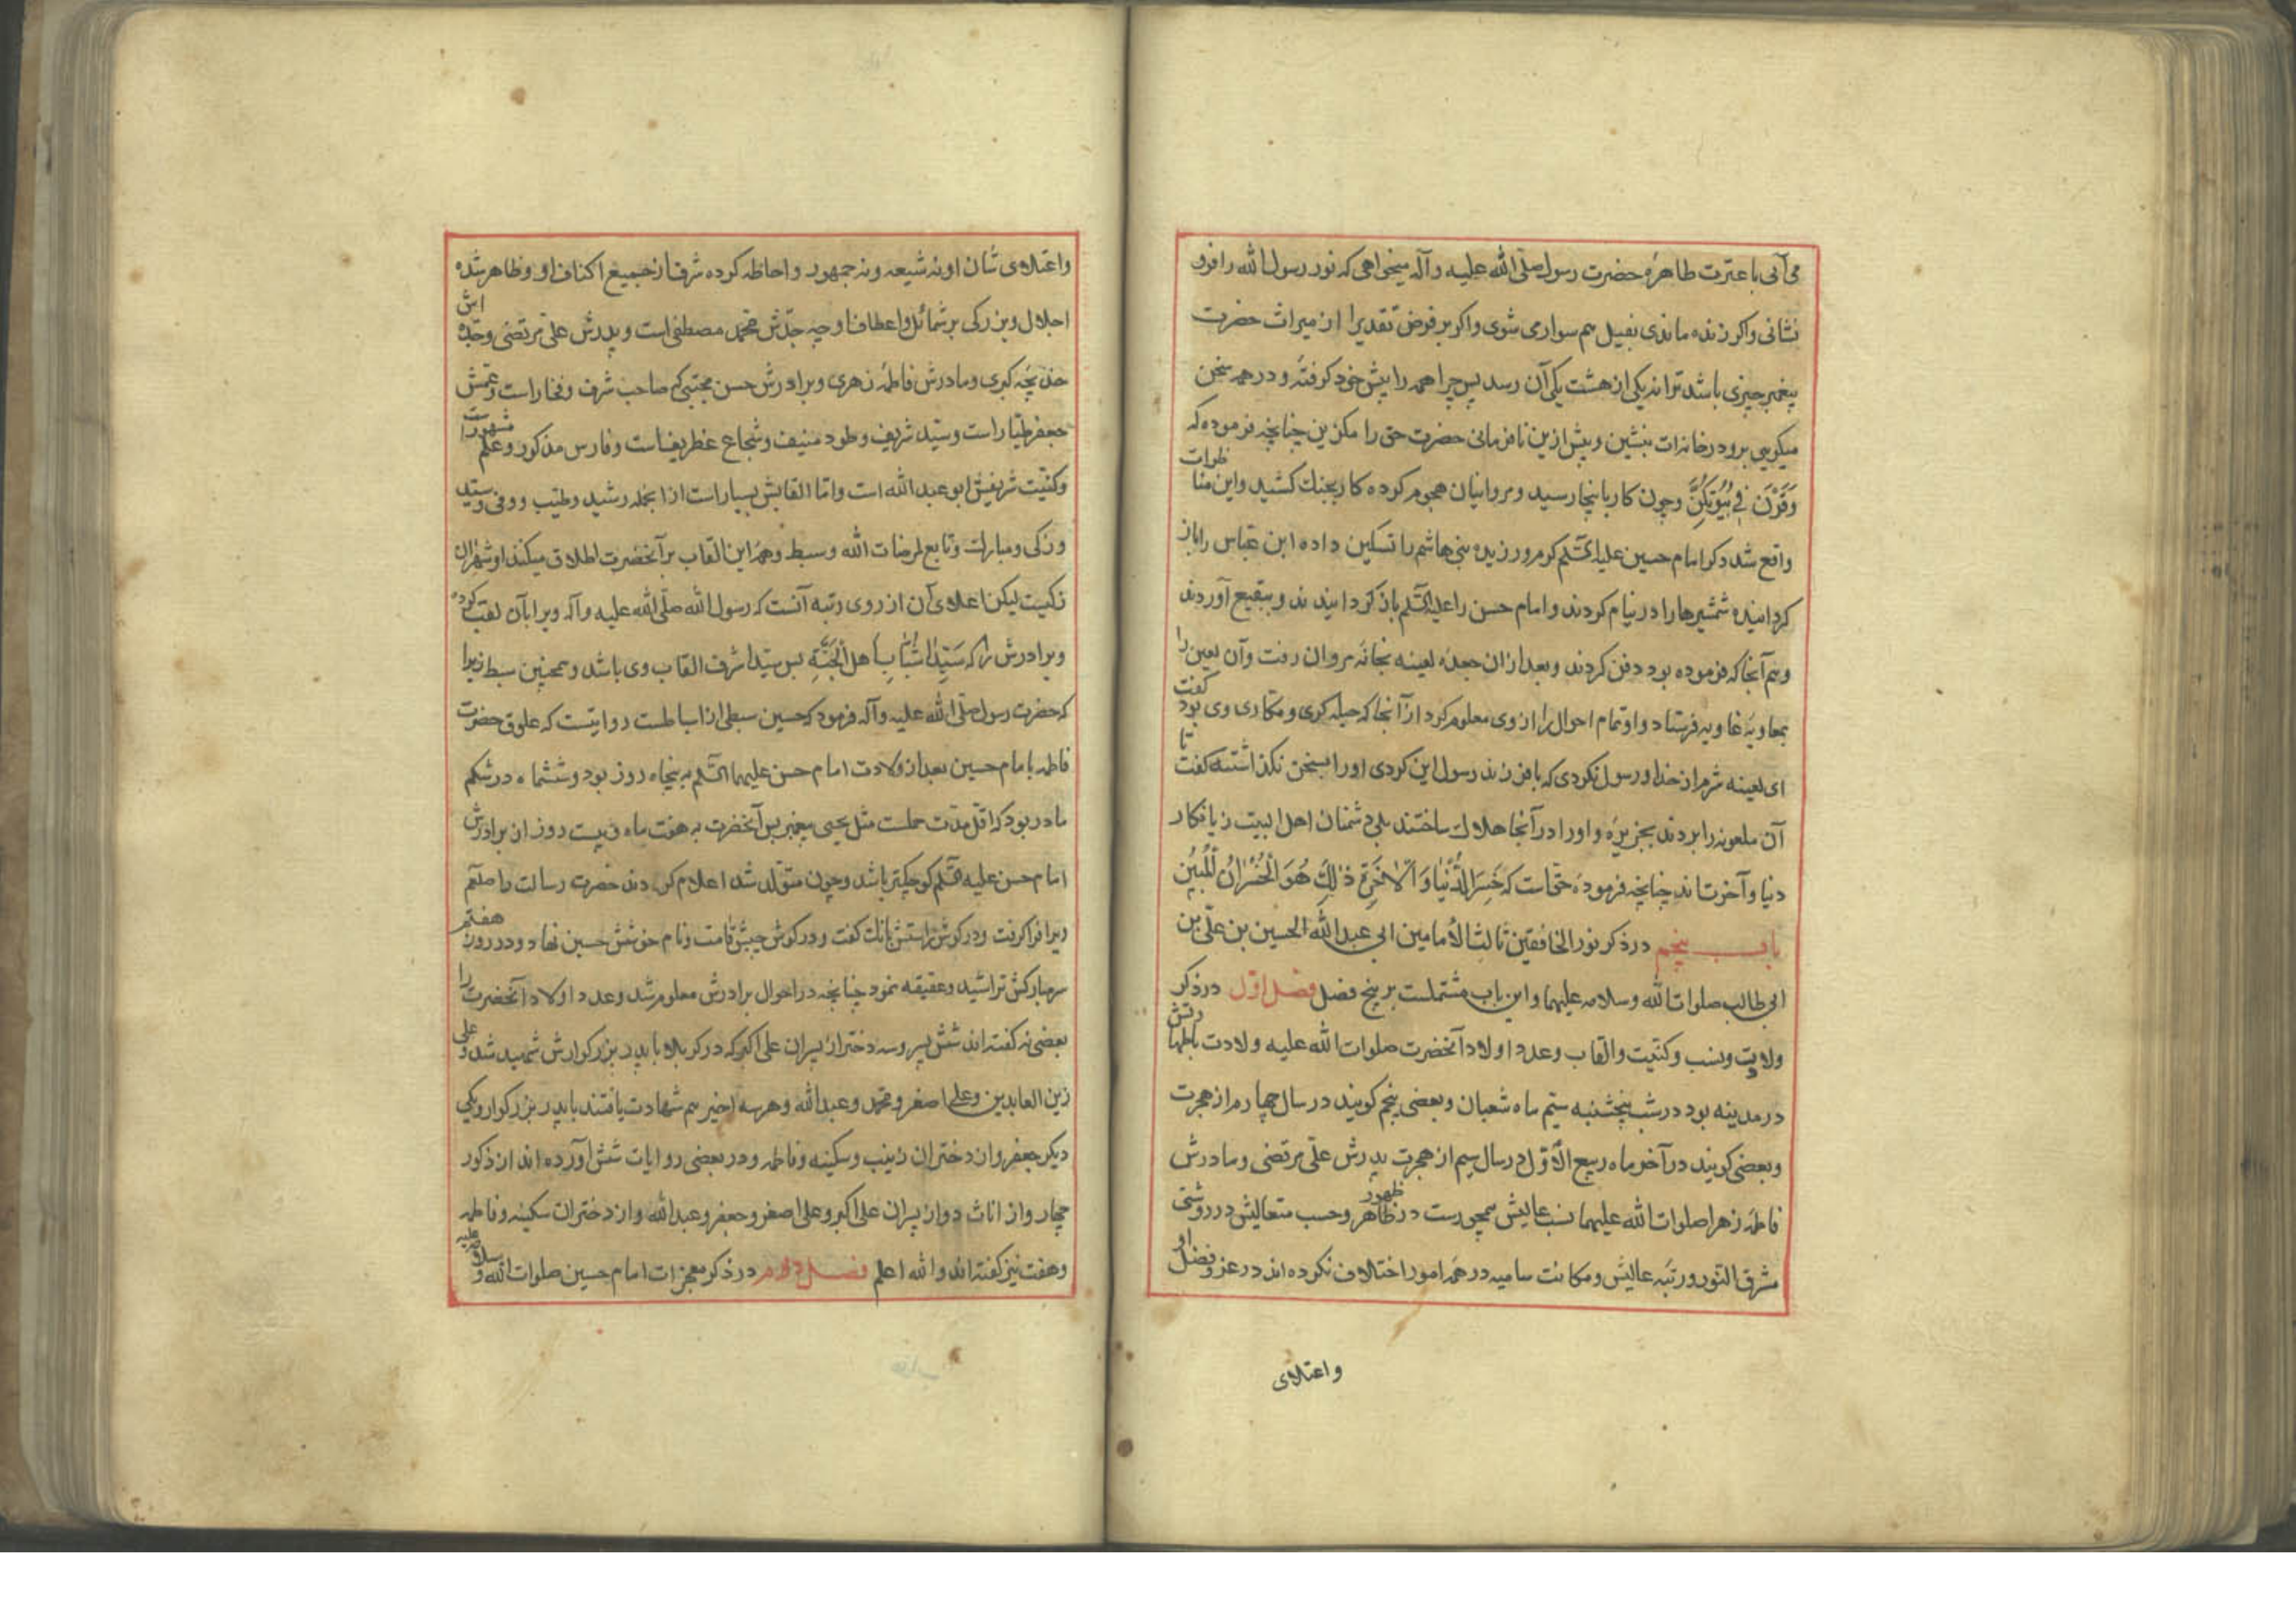 می آیی با عترت طاهرهٔ حضرت رسول صلّی الله علیه وآله میخواهی که نور رسول الله را فرو
نشانی واکر زنده ماندی بفیل هم سوار می شوی واکر بر فرض تقدیرا از میراث حضرت
پیغمبر چیزی باشد ترا نه یکی از هشت یکی آن رسد پس چرا همه را پیش خود کرفته ودر همه سخن
میکویی برو در خانه ات بنشین وبیش ازین نافرمانی حضرت حق را مکزین چنانچه فرموده که
وَقَرْنَ فِی بُیُوتِکُنَّ وچون کار باینجا رسید ومروانیان هجوم کرده کار بجنك کشید واین مناظرات
واقع شد دکر امام حسین علیه السّلم کرم ورزیده بنی هاشم را تسکین داده ابن عبّاس را باز
کردانیده شمشیرها را در نیام کردند وامام حسن را علیه السّلم باز کردانیدند وببقیع آوردند
وهم آنجا که فرموده بود دفن کردند وبعد ازان جعدهٔ لعینه بخانهٔ مروان رفت وآن لعین را
بمعاویهٔ غاویه فرستاد واو تمام احوال را از وی معلوم کرد از آنجا که حیله کری ومکاری وی بود کفت
ای لعینه شرم از خدا ورسول نکردی که با فرزند رسول این کردی اورا بسخن نکذاشتند کفت تا
آن ملعونه را بردند بجزیرهٔ واورا در آنجا هلاك ساختند بلی دشمنان اهل البیت زیانکار
دنیا وآخرت اند چنانچه فرمودهٔ حق است که خَسِرَ الدُّنْیَا وَالْآخِرَةِ ذٰلِكَ هُوَ الْخُسْرَانُ الْمُبِین
باب پنجم در ذکر نور الخافقین ثالث الأمامین ابی عبد الله الحسین بن علی بن
ابی طالب صلوات الله وسلامه علیهما واین باب مشتملست بر پنج فصل فصل اوّل در ذکر
ولادت ونسب وکنیّت والقاب وعدد اولاد آنحضرت صلوات الله علیه ولادت باطهارتش
در مدینه بود در شب پنجشنبه سیّم ماه شعبان وبعضی پنجم کویند در سال چهارم از هجرت
وبعضی کویند در آخر ماه ربیع الاوّل در سال سیم از هجرت پدرش علی مرتضی ومادرش
فاطمهٔ زهرا صلوات الله علیهما نسب عالیش همچو رست در ظاهر ظهور وحسب متعالیش در روشنی
مشرق النور ورتبهٔ عالیش ومکانت سامیه در همه امور اختلاف نکرده اند در عز وفضل او
واعتلای
واعتلای شان او نه شیعه ونه جمهور واحاطه کرده شرف از جمیع اکناف او وظاهر شده
اجلال وبزرکی بر شمائل واعطاف او چه جدّش محمد مصطفی است وپدرش علی مرتضی وجدّه اش
خدیجهٔ کبری ومادرش فاطمهٔ زهری وبرادرش حسن مجتبی که صاحب شرف وفخار است وعمّش
جعفر طیّار است وسیّد شریف وطود منیف وشجاع غطریف است وفارس مذکور وعَلَم مشهور است
وکنیّت شریفش ابو عبد الله است وامّا القابش بسیار است از انجمله رشید وطیّب ووفی وسیّد
وزکی ومبارك وتابع لمرضات الله وسبط وهمه این القاب بر آنحضرت اطلاق میکنند واشهر ان
زکیست لیکن اعلای آن از روی رتبه آنست که رسول الله صلّی الله علیه وآله ویرا بآن لقب کرده
وبرادرش را که سَیِّدَا شَبَابِ اَهْلِ الْجَنَّةِ پس سیّد اشرف القاب وی باشد وهمچنین سبط زیرا
که حضرت رسول صلّی الله علیه وآله فرمود که حسین سبطی از اسباطست روایتست که علوق حضرت
فاطمه با امام حسین بعد از ولادت امام حسن علیهما السّلم به پنجاه روز بود وششماه در شکم
مادر بود که اقل مدّت حملست مثل یحیی پیغمبر پس آنحضرت به هفت ماه وبیست روز از برادرش
امام حسن علیه السّلم کوچکتر باشد وچون متولّد شد اعلام کردند حضرت رسالت را صلعم
ویرا فرا کرفت ودر کوش راستش بانك کفت ودر کوش چپش قامت ونام خوشش حسین نهاد ودر روز هفتم
سر مبارکش تراشید وعقیقه نمود چنانچه در احوال برادرش معلوم شد وعدد اولاد آنحضرت را
بعضی نه کفته اند شش پسر وسه دختر از پسران علی اکبر که در کربلا با پدر بزرکوارش شهید شد وعلی
زین العابدین وعلی اصغر ومحمد وعبد الله وهر سه اخیر هم شهادت یافتند با پدر بزرکوار ویکی
دیکر جعفر واز دختران زینب وسکینه وفاطمه ودر بعضی روایات شش آورده اند از ذکور
چهار واز اناث دو از پسران علی اکبر وعلی اصغر وجعفر وعبد الله واز دختران سکینه وفاطمه
وهفت نیز کفته اند والله اعلم فصل دوم در ذکر معجزات امام حسین صلوات الله وسلامه علیه